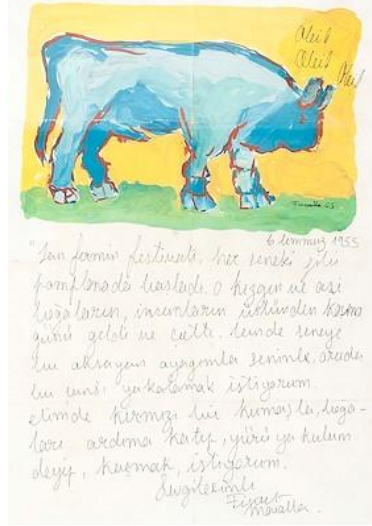 Oleii
Oleii
Oleii
6 temmuz 1955
"San fermin festivali, her seneki gibi
pamplonada başladı. O kızgın ve asi
boğaların, insanların üstünden koşma
günü geldi ve çattı. bende seneye
bu aksayan ayağımla seninle, orada
bu ünsü yakalamak istiyorum.
elimde kırmızı bir kumaşla, boğa-
ları ardıma katıp, yürü ya kulum
deyip, koşmak, istiyorum.
Sevgilerimle
Fikret
Mualla.